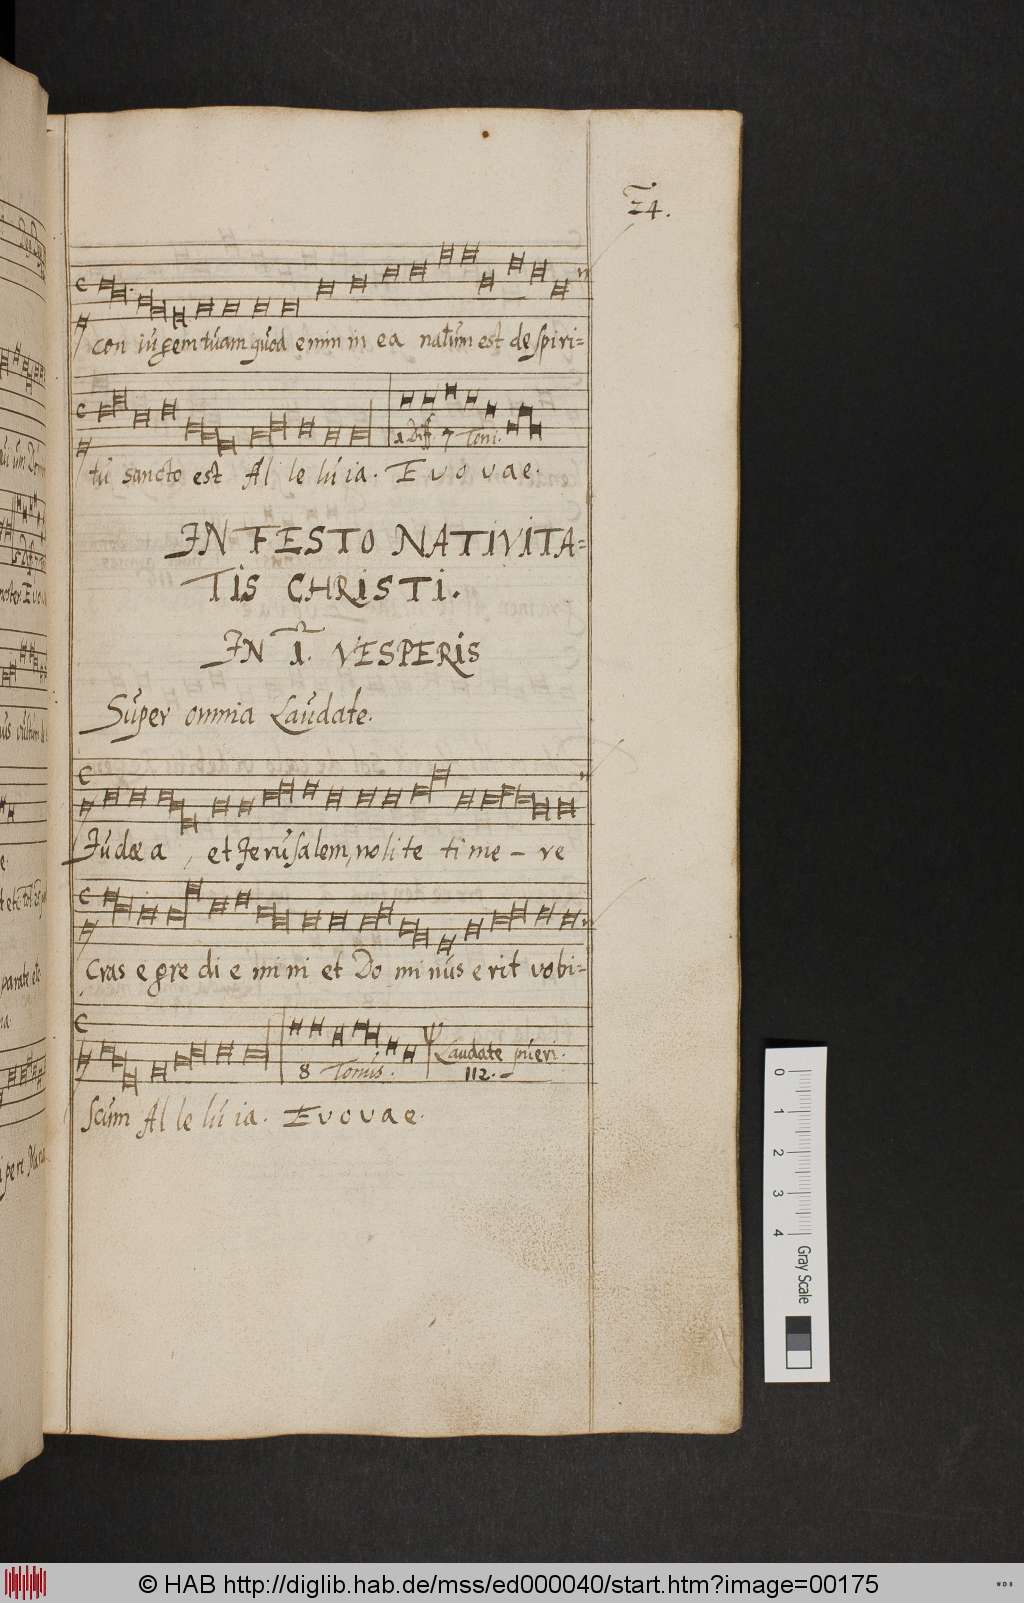 24.
con iugem tuam quod enim in ea natum est de spiri=
1 Diff 7 Toni.
tu sancto est Al le lu ia. Evovae.
IN FESTO NATIVITA=
TIS CHRISTI.
IN 1. VESPERIS
Super omnia Laudate.
Judæa, et Jerusalem, nolite time - re
Cras egredi emini et Dominus erit vobi=
8 Tonus. Laudate pueri.
112.
scum Al le lu ia. Evovae.
0 1 2 3 4 Gray Scale
© HAB http://diglib.hab.de/mss/ed000040/start.htm?image=00175